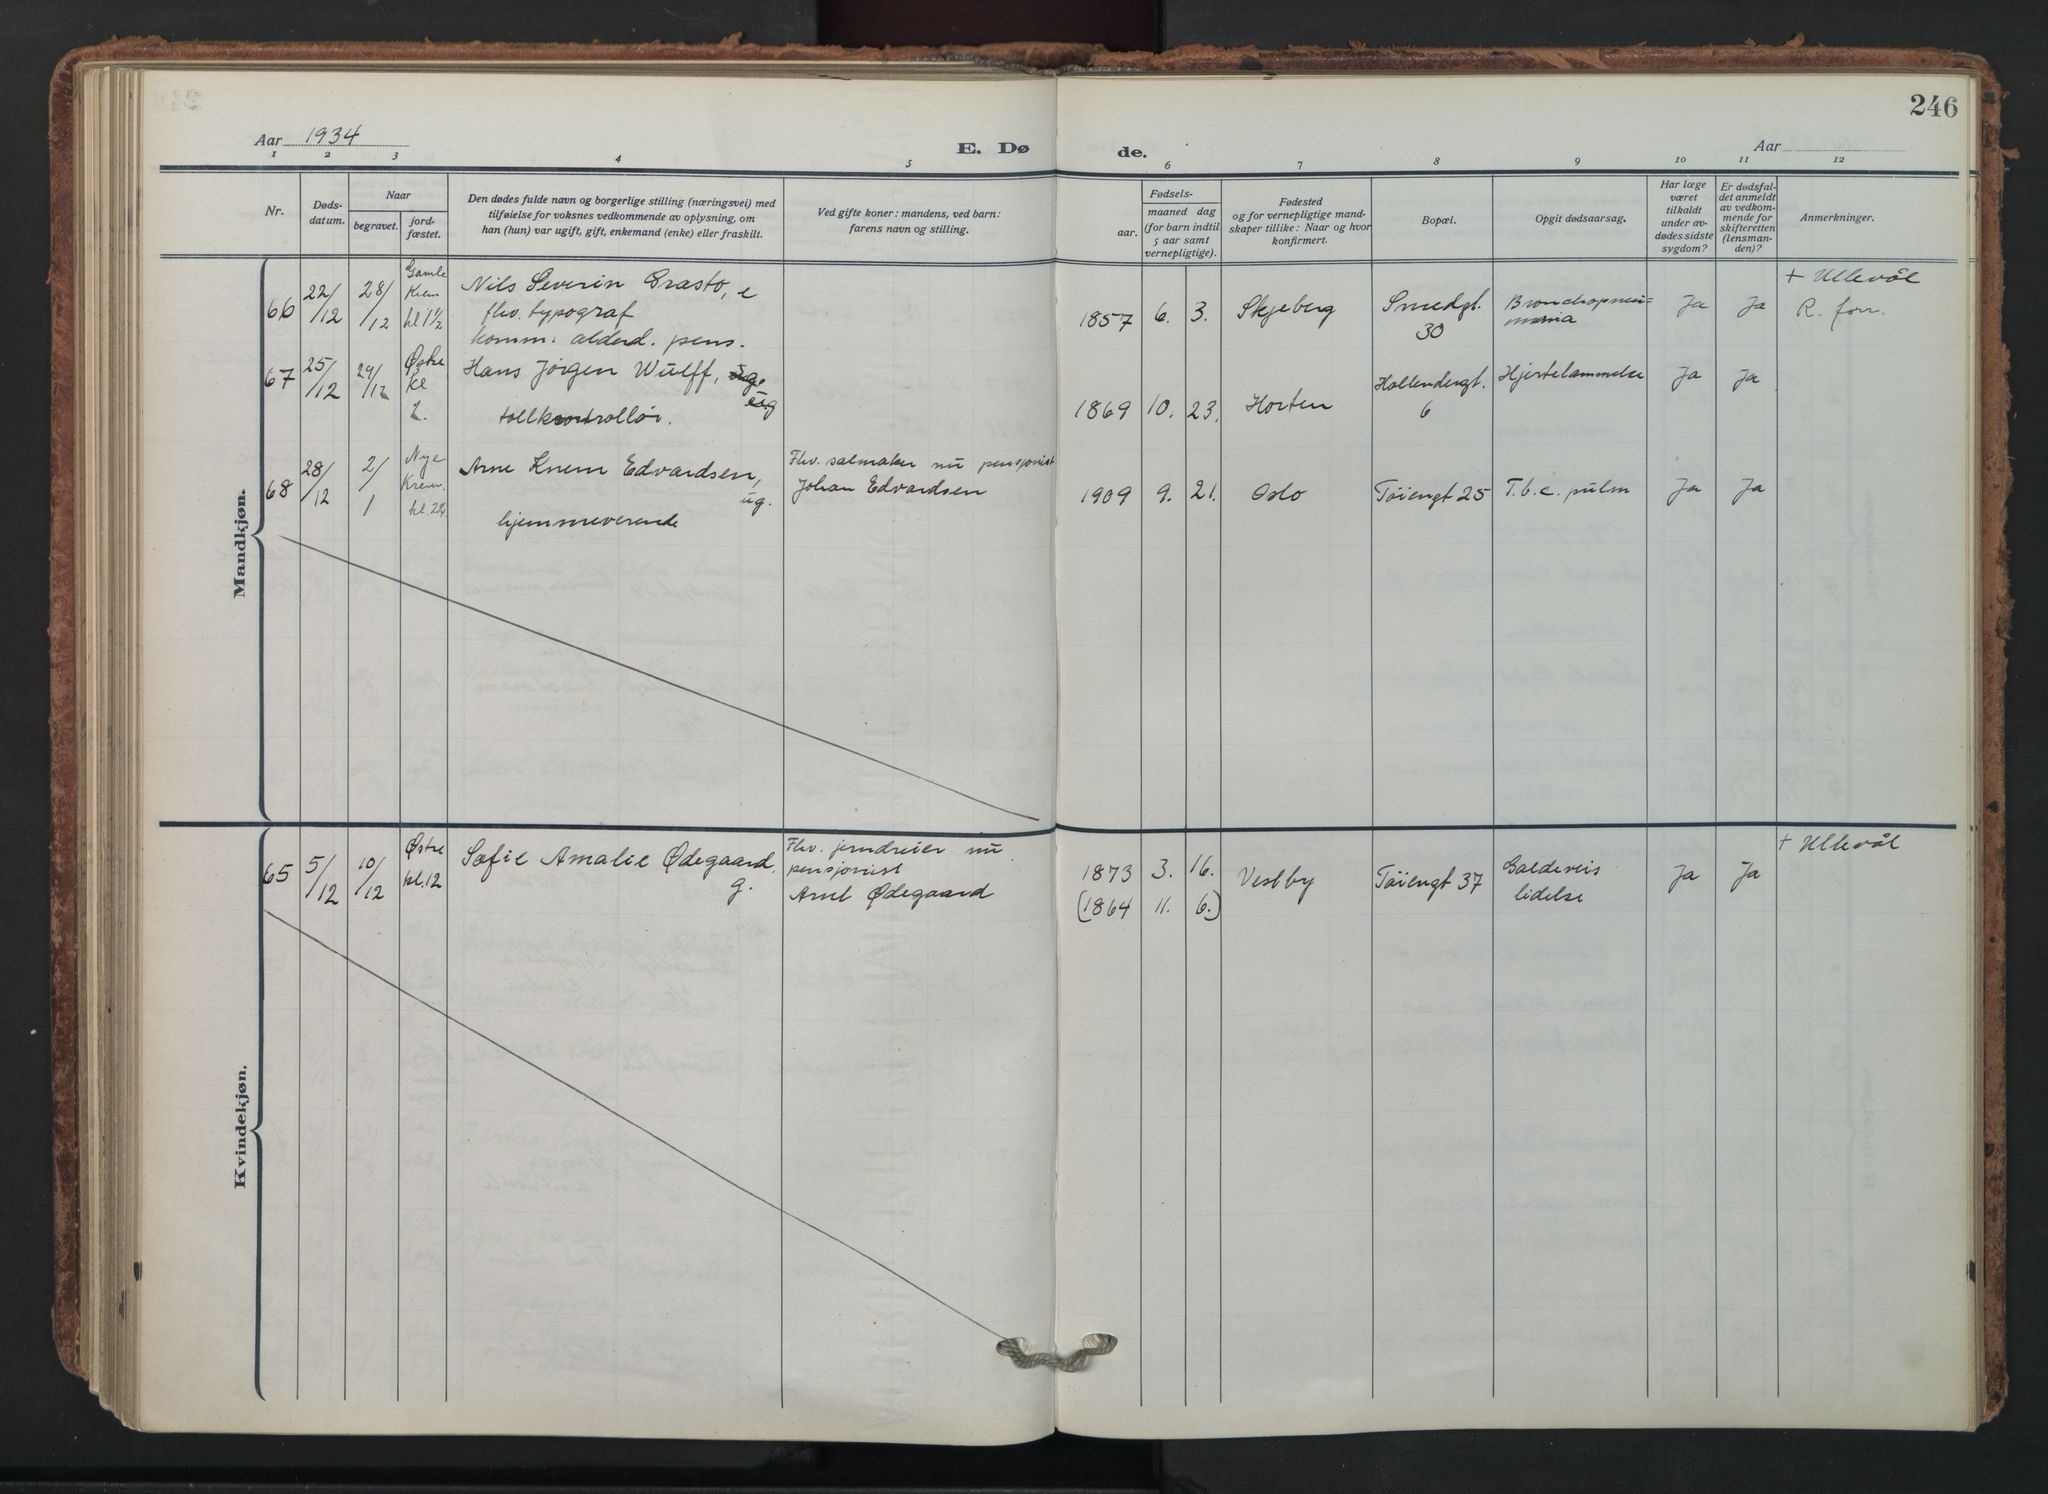 246
Aar 1934
E. Dø
de.
Aar
1 2 3 4 5 6 7 8 9 10 11 12
Nr.
Døds-
datum.
Naar
begravet.
jord-
fæstet.
Den dødes fulde navn og borgerlige stilling (næringsvei) med
tilføielse for voksnes vedkommende av oplysning, om
han (hun) var ugift, gift, enkemand (enke) eller fraskilt.
Ved gifte koner: mandens, ved barn:
farens navn og stilling.
Fødsels-
aar.
maaned dag
(for barn indtil
5 aar samt
vernepligtige).
Fødested
og for vernepligtige mand-
skaper tillike: Naar og hvor
konfirmert.
Bopæl.
Opgit dødsaarsag.
Har læge
været
tilkaldt
under av-
dødes sidste
sygdom?
Er dødsfal-
det anmeldt
av vedkom-
mende for
skifteretten
(lensman-
den)?
Anmerkninger.
Mandkjøn.
66 22/12 28/12
Gamle
Krem
kl 1½
Nils Severin Grasto, e
fhv. typograf
komm. alderd. pens.
1857 6. 3. Skjeberg
Smedgt.
30
Bronchopneu=
monia
Ja Ja
+ Ullevål
R. forr.
67 25/12 29/12
Østre
kl
2.
Hans Jörgen Wulff, ug.
ug
tollkontrollör.
1869 10. 23. Horten
Hollendergt.
6
Hjertelammelse
Ja Ja
68 28/12 2/1
Nye
Krem.
Arne Knem Edvardsen,
ug.
hjemmeverende
Fhv. salmaker nu pensjonist
Johan Edvardsen
1909 9. 21. Oslo Töiengt 25 T.b.c. pulm Ja Ja
Kvindekjøn.
65 5/12 10/12
Østre
kl. 12
Sofie Amalie Ødegaard,
g.
Fhv. jerndreier nu
pensjonist
Arnt Ødegaard
1873 3. 16.
(1864 11. 6.)
Vestby Töiengt 37
Galdeveis
lidelse
Ja Ja
+ Ullevål